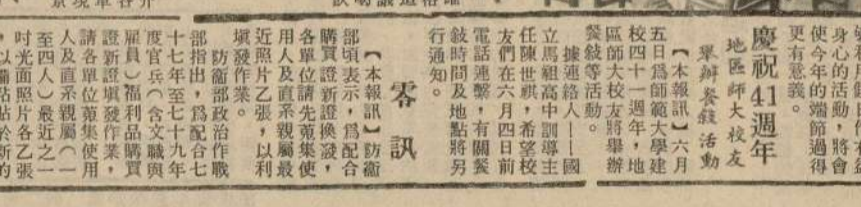 身心的活動，將會
使今年的端節過得
更有意義。
慶祝41週年
地區師大校友
舉辦餐敍活動
【本報訊】六月
五日爲師範大學建
校四十一週年，地
區師大校友將舉辦
餐敍等活動。
據連絡人——國
立馬祖高中訓導主
任陳世祺，希望校
友們在六月四日前
電話連繫，有關餐
敍時間及地點將另
行通知。
零訊
【本報訊】防衞
部頃表示，爲配合
購買證新證換發，
各單位請先蒐集使
用人及直系親屬最
近照片乙張，以利
塡發作業。
防衞部政治作戰
部指出，爲配合七
十七年至七十九年
度官兵（含文職與
雇員）福利品購買
證新證塡發作業，
請各單位蒐集使用
人及直系親屬（一
至四人）最近之一
吋光面照片各乙張